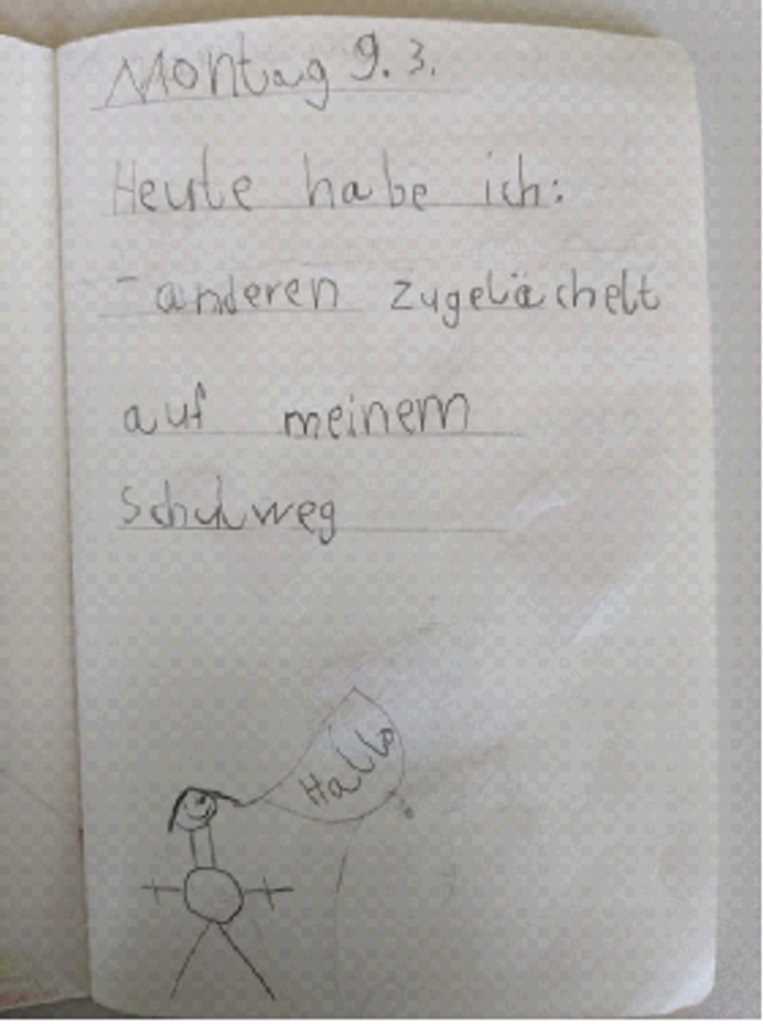 Montag 9.3.
Heute habe ich:
- anderen zugelächelt
auf meinem
Schulweg
Hallo